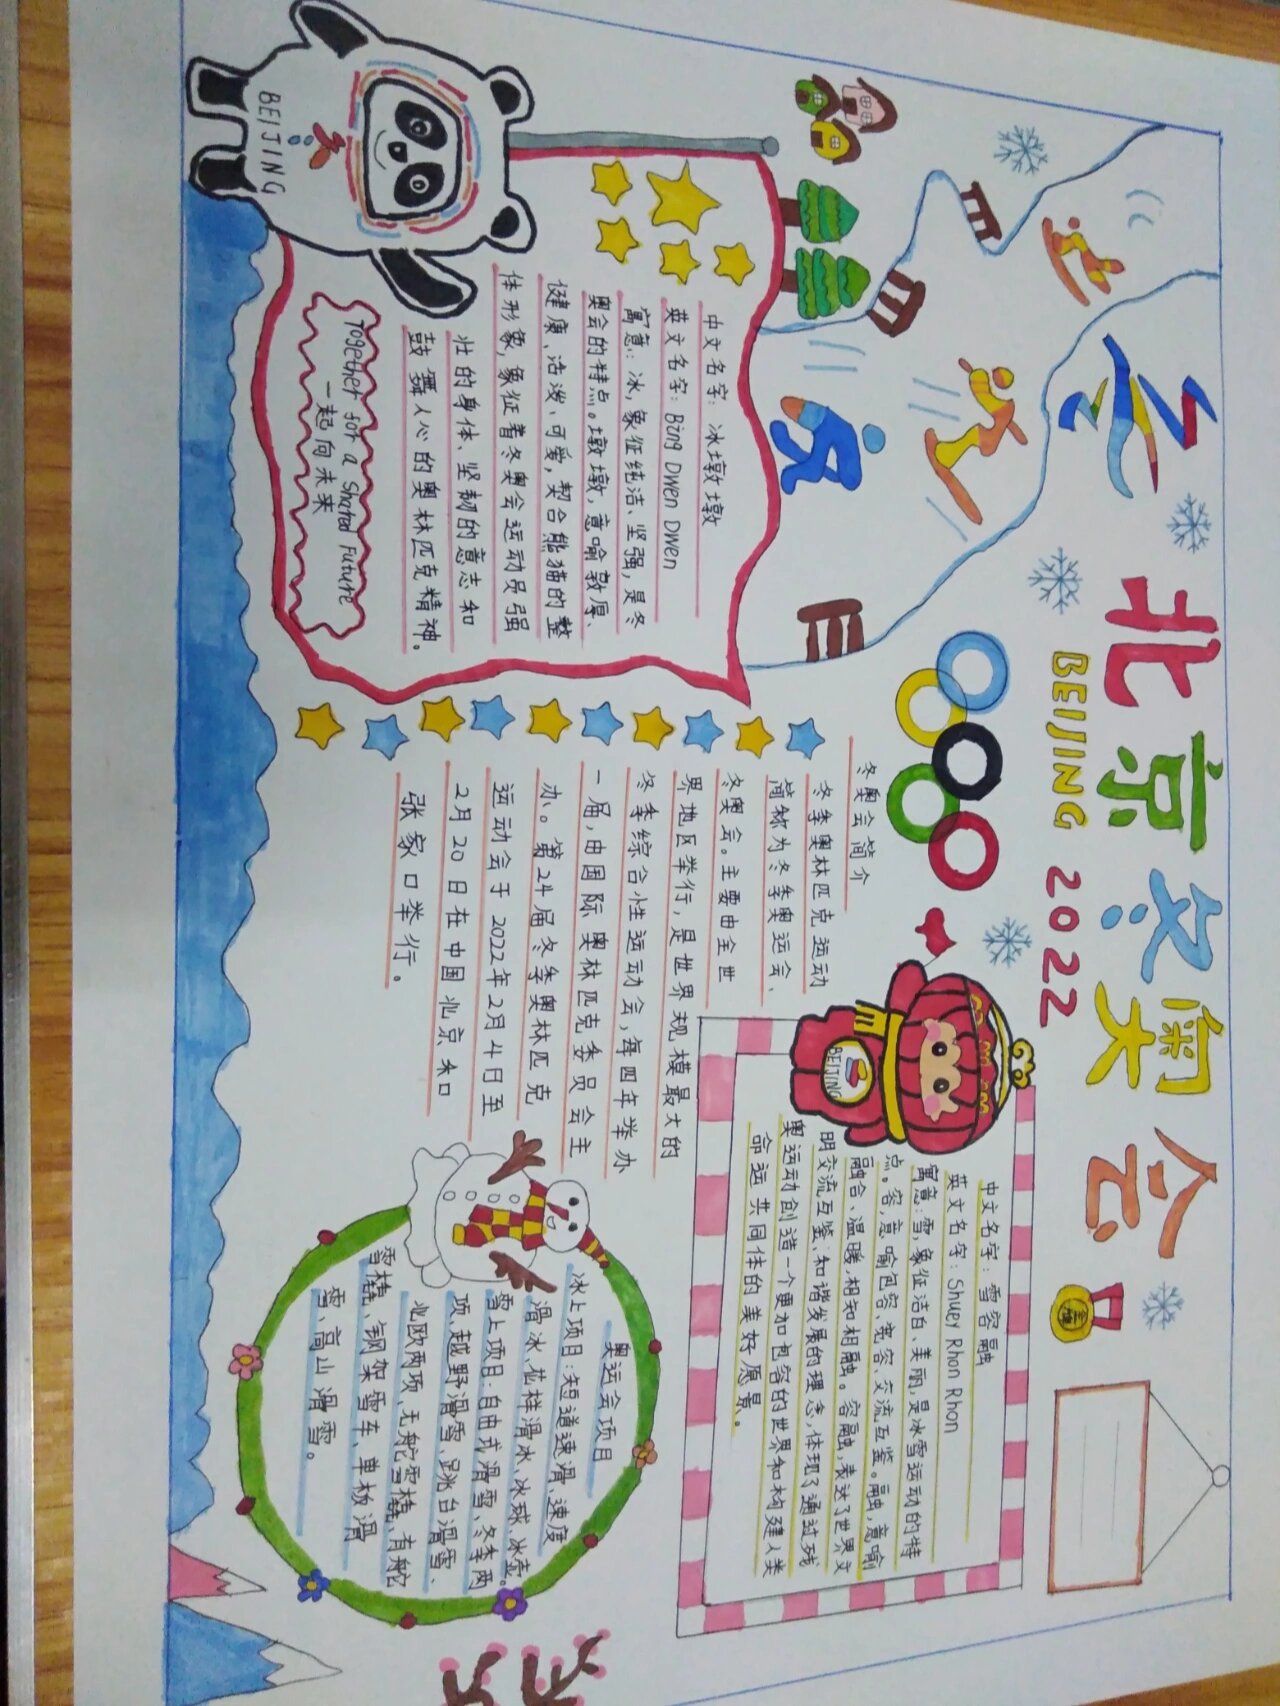 北京冬奥会
BEIJING 2022
中文名字：冰墩墩
英文名字：Bing Dwen Dwen
寓意：冰，象征纯洁、坚强，是冬
奥会的特点。墩墩，意喻敦厚、
健康、活泼、可爱，契合熊猫的整
体形象，象征着冬奥会运动员强
壮的身体、坚韧的意志和
鼓舞人心的奥林匹克精神。
Together for a Shared Future
一起向未来
BEIJING
冬奥会简介
冬季奥林匹克运动
简称为冬季奥运会、
冬奥会。主要由全世
界地区举行，是世界规模最大的
冬季综合性运动会，每四年举办
一届，由国际奥林匹克委员会主
办。第24届冬季奥林匹克
运动会于2022年2月4日至
2月20日在中国北京和
张家口举行。
BEIJING
中文名字：雪容融
英文名字：Shuey Rhon Rhon
寓意：雪，象征洁白、美丽，是冰雪运动的特
点。容，意喻包容、宽容、交流互鉴。融，意喻
融合、温暖，相知相融。容融，表达了世界文
明交流互鉴、和谐发展的理念，体现了通过残
奥运动创造一个更加包容的世界和构建人类
命运共同体的美好愿景。
奥运会项目
冰上项目：短道速滑、速度
滑冰、花样滑冰、冰球、冰壶。
雪上项目：自由式滑雪、冬季两
项、越野滑雪、跳台滑雪、
北欧两项、无舵雪橇、有舵
雪橇、钢架雪车、单板滑
雪、高山滑雪。